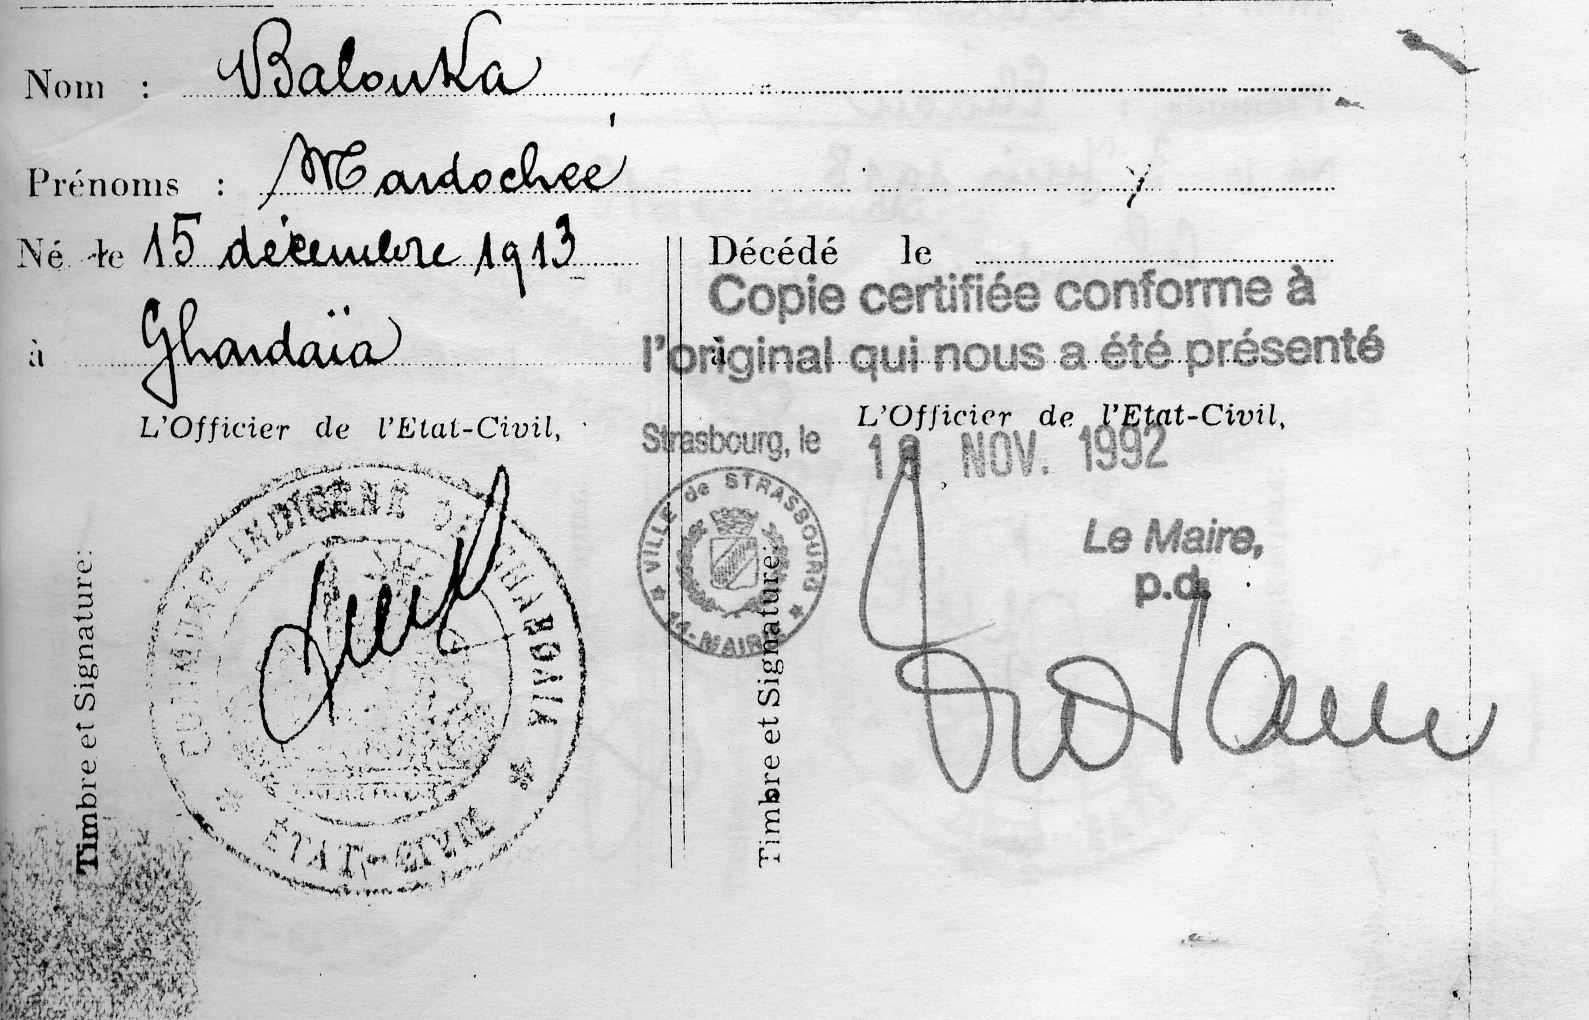 Nom : Balouka
Prénoms : Mardochée
Né le 15 décembre 1913
à Ghardaïa
L'Officier de l'Etat-Civil,
Timbre et Signature:
COMMUNE INDIGÈNE DE GHARDAÏA
ÉTAT-CIVIL
Décédé le
à
Copie certifiée conforme à
l'original qui nous a été présenté
L'Officier de l'Etat-Civil,
Strasbourg, le NOV. 1992
VILLE de STRASBOURG
MAIRIE
Le Maire,
p.d.
Timbre et Signature: